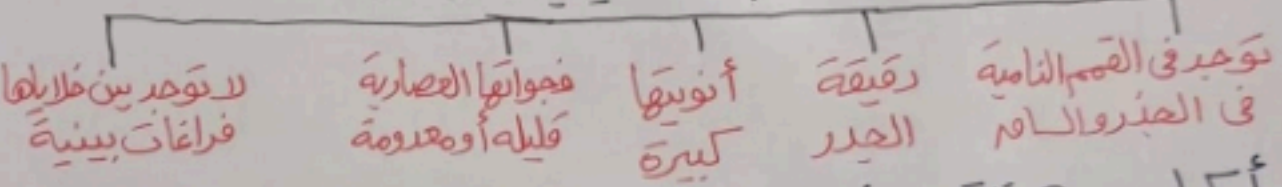 توجد في القمم النامية
في الجذر والساق
دقيقة
الجدر
أنويتها
كبيرة
فجواتها العصارية
قليله أو معدومة
لا توجد بين خلاياها
فراغات بينية